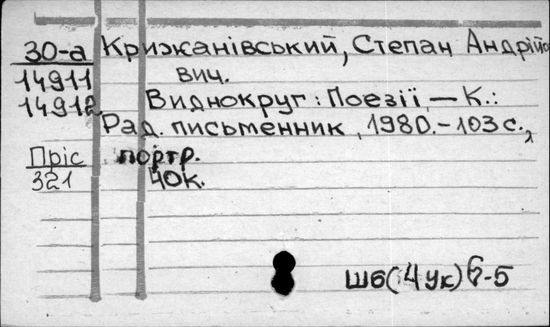 30-а Крижанівський, Степан Андрійо
14911 вич.
14912 Виднокруг : Поезії. — К.:
Рад. письменник, 1980.-103 с.,
Пріс портр.
321 40к.
Ш6(4Ук)6-5